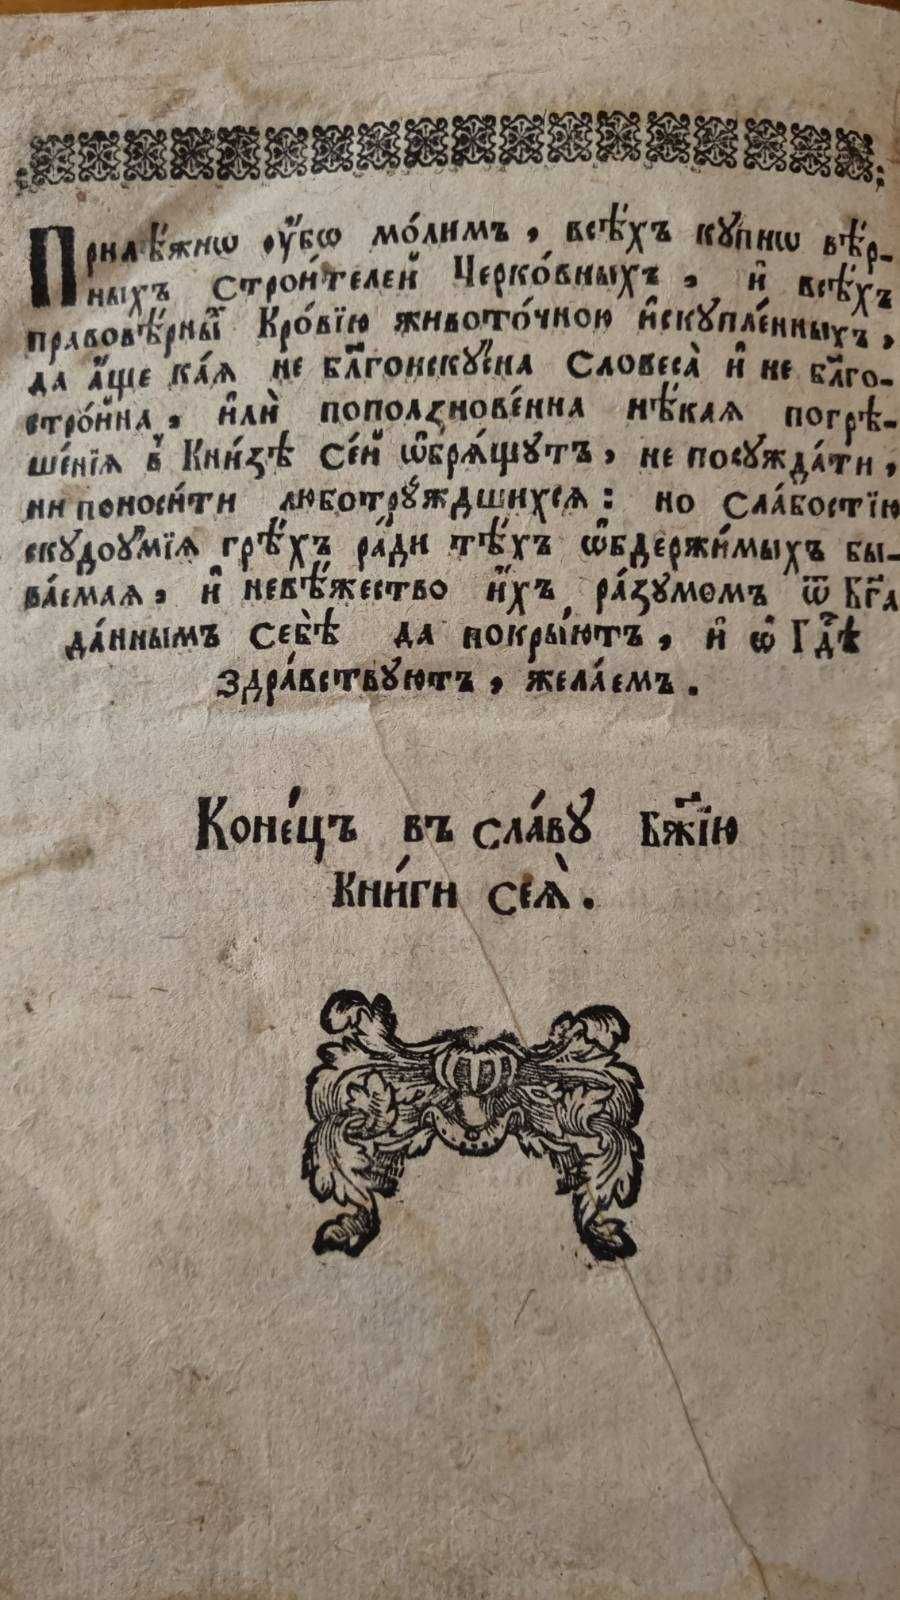 Прилѣ́жнѡ ᲂу҆́бѡ мо́лимъ, всѣ́хъ кꙋ́пнѡ вѣ́р-
ныхъ Строи́телей Черко́вныхъ, и҆ всѣ́хъ
правовѣ́рны́хъ Кро́вїю живото́чною и҆скꙋпле́нныхъ,
да а҆́ще ка́ѧ не бл҃гоискꙋ́сна Словеса̀ и҆ не бл҃го-
стро́йна, и҆лѝ поползнове́нна нѣ́каѧ погрѣ-
ше́нїѧ в̾ Кни́зѣ Се́й ѡ҆брѧ́щꙋтъ, не посꙋжда́ти,
ни поноси́ти люботрꙋ́ждшихсѧ: но Сла́бостїю
скꙋдоꙋ́мїѧ грѣ́хъ ра́ди тѣ́хъ ѡ҆бдержи́мыхъ бы-
ва́емаѧ, и҆ невѣ́жество и҆́хъ ра́зꙋмомъ ѿ Бг҃а
да́ннымъ Себѣ̀ да покры́ютъ, и҆ ѡ҆ Гдⷭ҇ѣ
здра́вствꙋютъ, жела́емъ.
Коне́цъ въ сла́вꙋ Бж҃їю
кни́ги сеѧ̀.